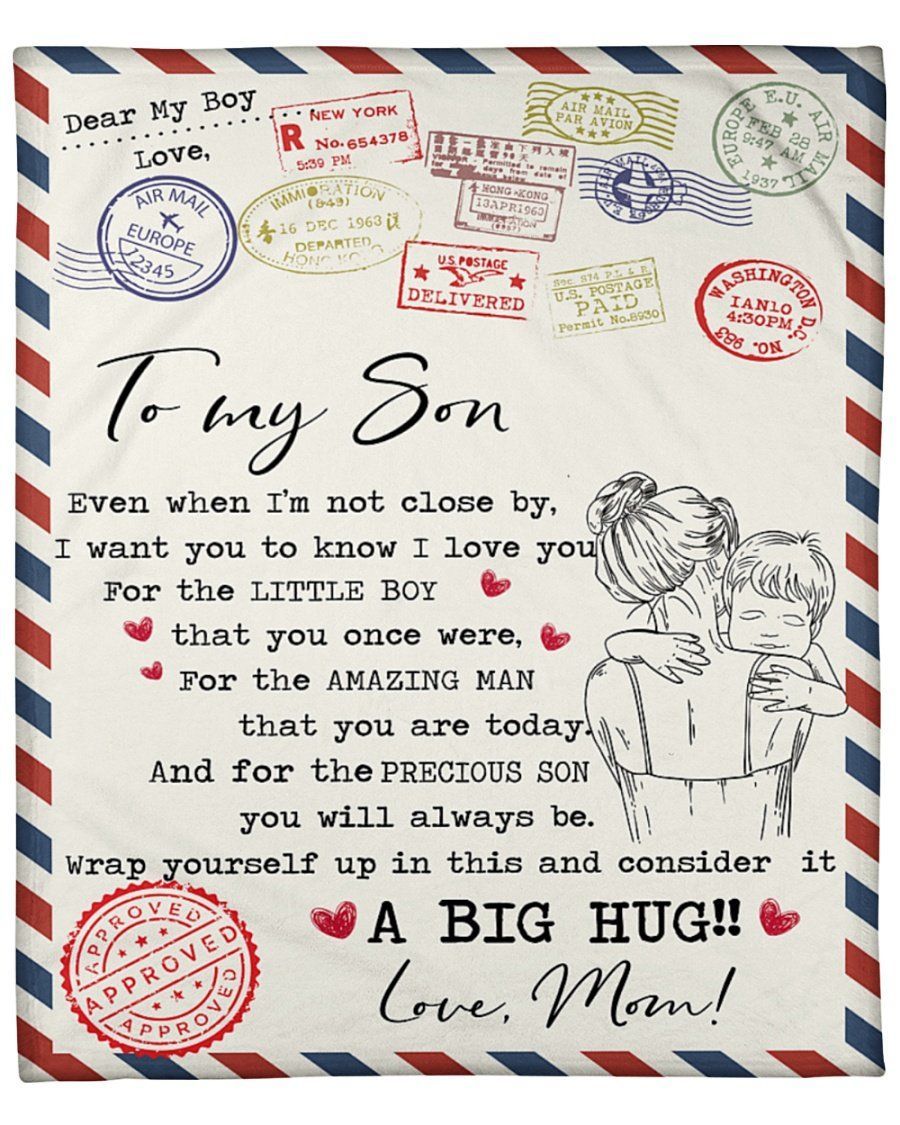 Dear My Boy
Love,
NEW YORK
R No. 654378
5:39 PM
AIR MAIL
EUROPE
12345
IMMIGRATION
16 DEC 1963
DEPARTED
HONG KONG
Permitted to remain
days from date of
HONG KONG
13APR1963
IMMIGRATION
U.S. POSTAGE
DELIVERED
AIR MAIL
PAR AVION
AIR MAIL
EUROPE E.U. AIR MAIL
FEB 28
9:47 AM
1937
Sec. 874 P.L & R.
U.S. POSTAGE
PAID
Permit No.8930
WASHINGTON D.C.
IAN10
4:30PM
NO. 983
To my Son
Even when I'm not close by,
I want you to know I love you
For the LITTLE BOY
that you once were,
For the AMAZING MAN
that you are today.
And for the PRECIOUS SON
you will always be.
Wrap yourself up in this and consider it
A BIG HUG!!
Love, Mom!
APPROVED
APPROVED
APPROVED